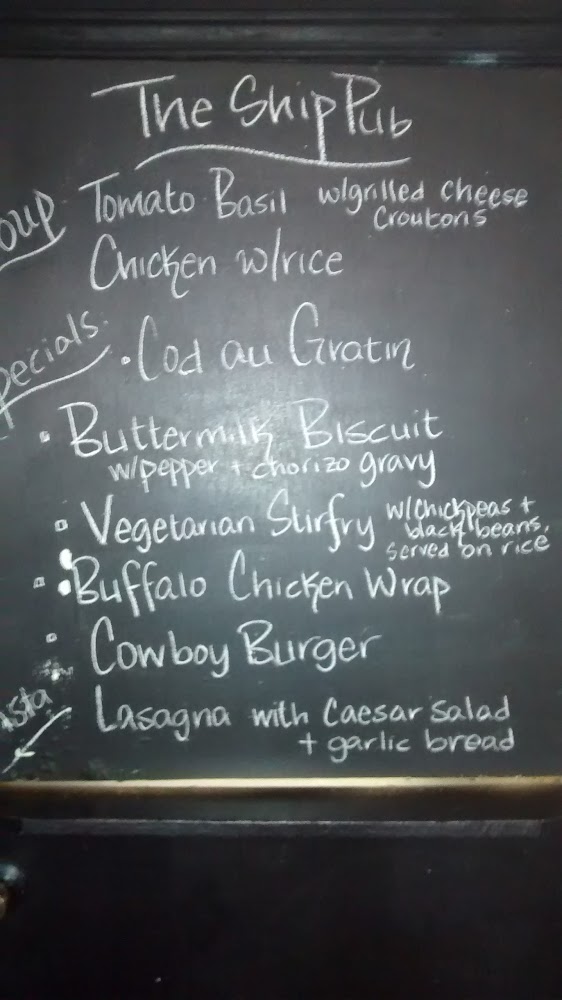 The Ship Pub
oup Tomato Basil w/grilled cheese
croutons
Chicken w/rice
pecials.
• Cod au Gratin
• Buttermilk Biscuit
w/pepper + chorizo gravy
• Vegetarian Stirfry w/chickpeas +
black beans,
served on rice
• Buffalo Chicken Wrap
• Cowboy Burger
asta Lasagna with Caesar Salad
+ garlic bread